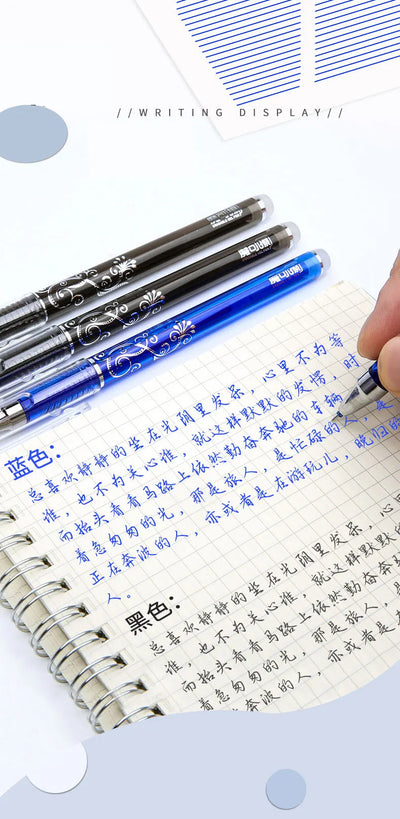 //WRITING DISPLAY//
蓝色：
总喜欢静静的坐在光阴里发呆，心里不为等
谁，也不为关心谁，就这样默默的发愣，时
而抬头看看马路上依然勤奋奔驰的车辆
着急匆匆的光，那是旅人，是忙碌的人，是
正在奔波的人，亦或者是在游玩儿，晚归的
人。
黑色：
总喜欢静静的坐在光阴里发呆，心
谁，也不为关心谁，就这样默默
而抬头看看马路上依然勤奋奔
着急匆匆的光，那是旅人，是
正在奔波的人，亦或者是在
人。